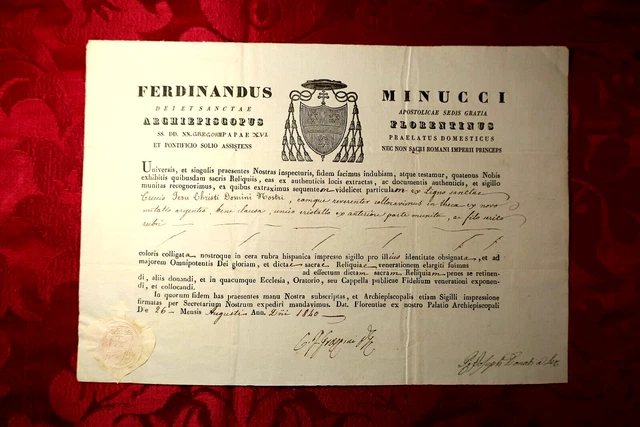 FERDINANDUS MINUCCI
DEI ET SANCTAE APOSTOLICAE SEDIS GRATIA
ARCHIEPISCOPUS FLORENTINUS
SS. DD. NN. GREGORII PAPAE XVI. PRAELATUS DOMESTICUS
ET PONTIFICIO SOLIO ASSISTENS NEC NON SACRI ROMANI IMPERII PRINCEPS
Universis, et singulis praesentes Nostras inspecturis, fidem facimus indubiam, atque testamur, quatenus Nobis
exhibitis quibusdam sacris Reliquiis, eas ex authenticis locis extractas, ac documentis authenticis, et sigillo
munitas recognovimus, ex quibus extraximus sequentem videlicet particulam ex Ligno sanctae
Crucis Jesu Christi Domini Nostri, eamque reverenter collocavimus in theca ex novo
metallo argenteo, bene clausa, unico cristallo ex anteriore parte munita, ac filo serico
rubri
coloris colligata nostroque in cera rubra hispanica impresso sigillo pro illius identitate obsignata, et ad
majorem Omnipotentis Dei gloriam, et dictae sacrae Reliquiae venerationem elargiti fuimus
ad effectum dictam sacram Reliquiam penes se retinen-
di, aliis donandi, et in quacumque Ecclesia, Oratorio, seu Cappella publicae Fidelium venerationi exponen-
di, et collocandi.
In quorum fidem has praesentes manu Nostra subscriptas, et Archiepiscopalis etiam Sigilli impressione
firmatas per Secretarium Nostrum expediri mandavimus. Dat. Florentiae ex nostro Palatio Archiepiscopali
De 26 Mensis Augusti Ann. Dñi 1840